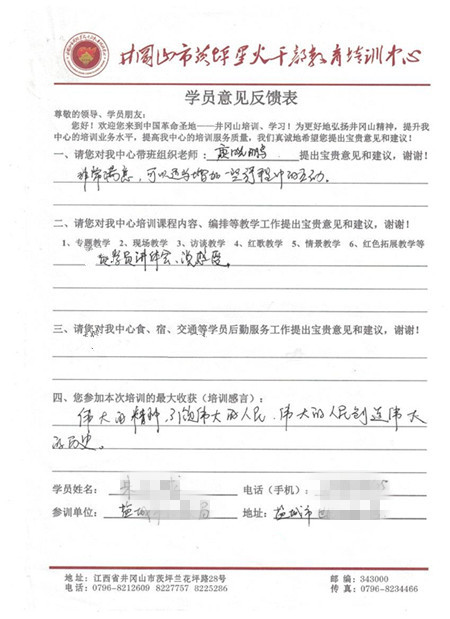 井冈山市茨坪星火干部教育培训中心
学员意见反馈表
尊敬的领导、学员朋友：
您好！欢迎您来到中国革命圣地——井冈山培训、学习！为更好地弘扬井冈山精神，提升我
中心的培训业务水平，提高我中心的培训服务质量，我们真诚地希望您提出宝贵意见和建议。
一、请您对我中心带班组织老师：提出宝贵意见和建议，谢谢！
非常满意，可以适当增加一些课程中的互动。
二、请您对我中心培训课程内容、编排等教学工作提出宝贵意见和建议，谢谢！
1、专题教学 2、现场教学 3、访谈教学 4、红歌教学 5、情景教学 6、红色拓展教学等
学员讲体会、谈感受。
三、请您对我中心食、宿、交通等学员后勤服务工作提出宝贵意见和建议，谢谢！
四、您参加本次培训的最大收获（培训感言）：
伟大的精神，引领伟大的人民，伟大的人民创造伟大
的历史。
学员姓名： 电话（手机）：
参训单位：盐城 局 地址：盐城市
地址：江西省井冈山市茨坪兰花坪路28号 邮编：343000
电话：0796-8212609 8227757 8225286 传真：0796-8234466